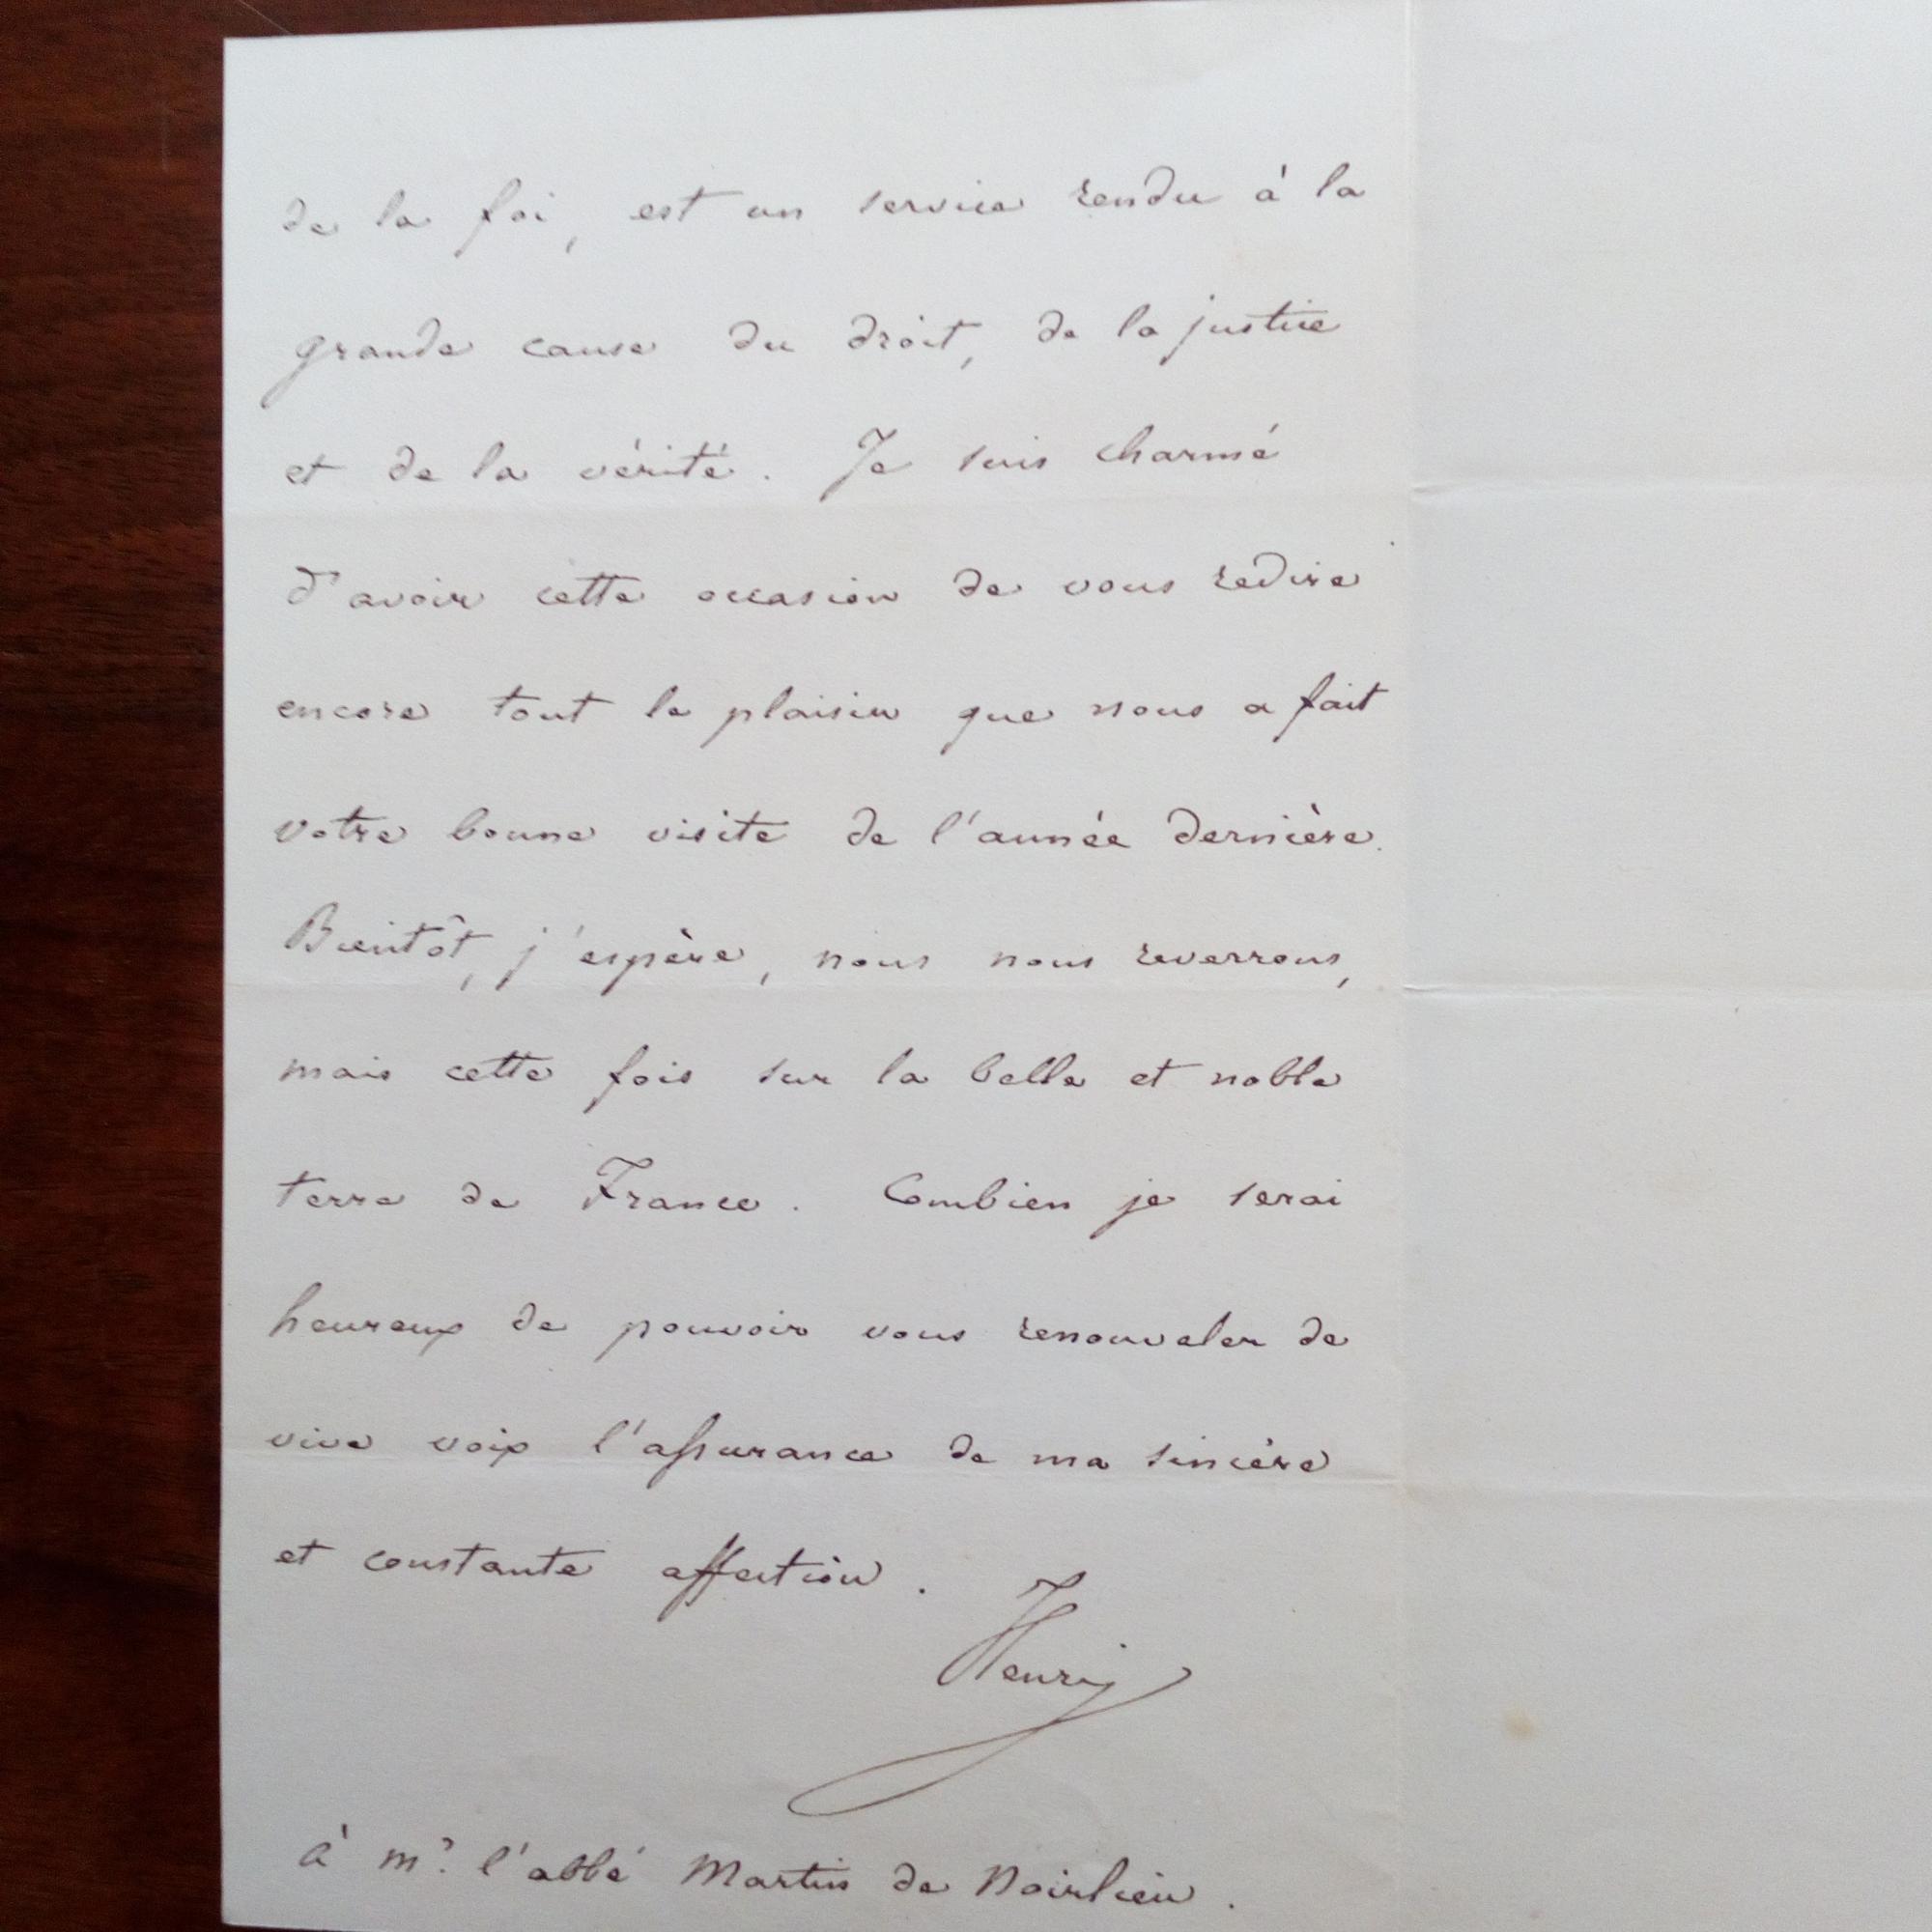 de la foi, est un service rendu à la
grande cause du droit, de la justice
et de la vérité. Je suis charmé
d'avoir cette occasion de vous redire
encore tout le plaisir que nous a fait
votre bonne visite de l'année dernière.
Bientôt, j'espère, nous nous reverrons,
mais cette fois sur la belle et noble
terre de France. Combien je serai
heureux de pouvoir vous renouveler de
vive voix l'assurance de ma sincère
et constante affection.
Henri
à Mr. l'abbé Martin de Noirlieu.